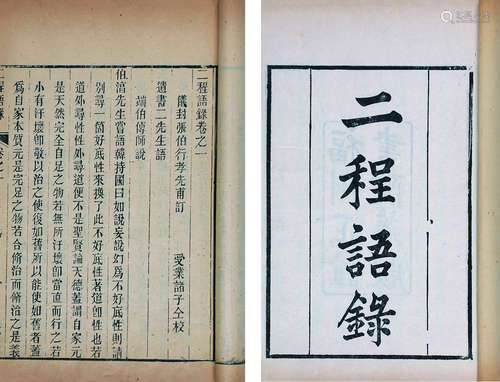 二程語錄卷之一
儀封張伯行孝先甫訂 受業諸子仝校
遺書二先生語
端伯傳師說
伯淳先生嘗語韓持國曰如說妄說幻爲不好底性則請
別尋一箇好底性來換了此不好底性著道卽性也若
道外尋性性外尋道便不是聖賢論天德蓋謂自家元
是天然完全自足之物若無所汙壞卽當直而行之若
小有汙壞卽敬以治之使復如舊所以能使如舊者蓋
爲自家本質元是完足之物若合修治而修治之是義
二程語錄
卷之一
二程語錄